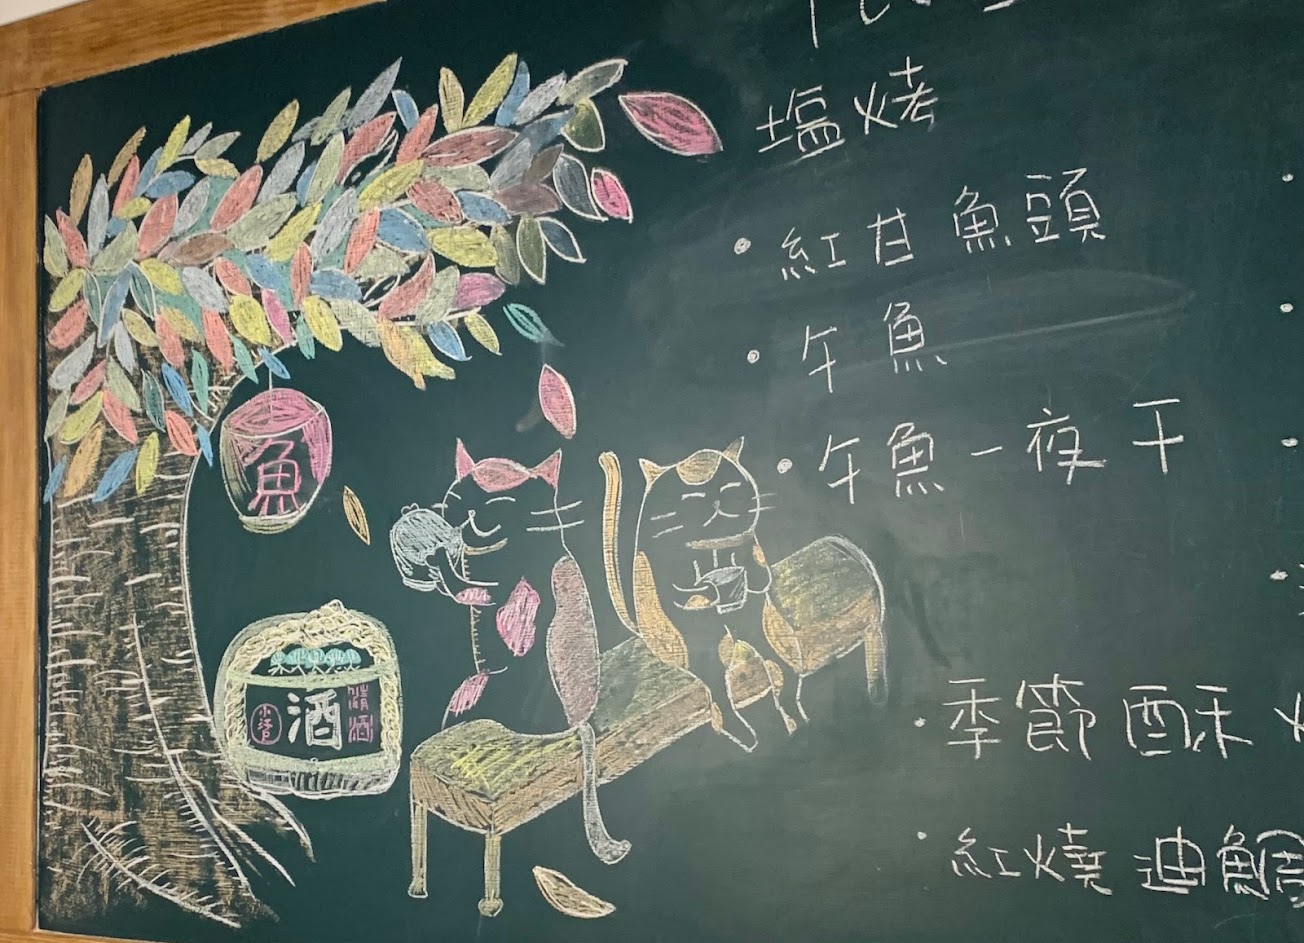 塩烤
・紅甘魚頭
・午魚
・午魚一夜干
・季節酥
・紅燒迪鯛
魚
酒
清酒